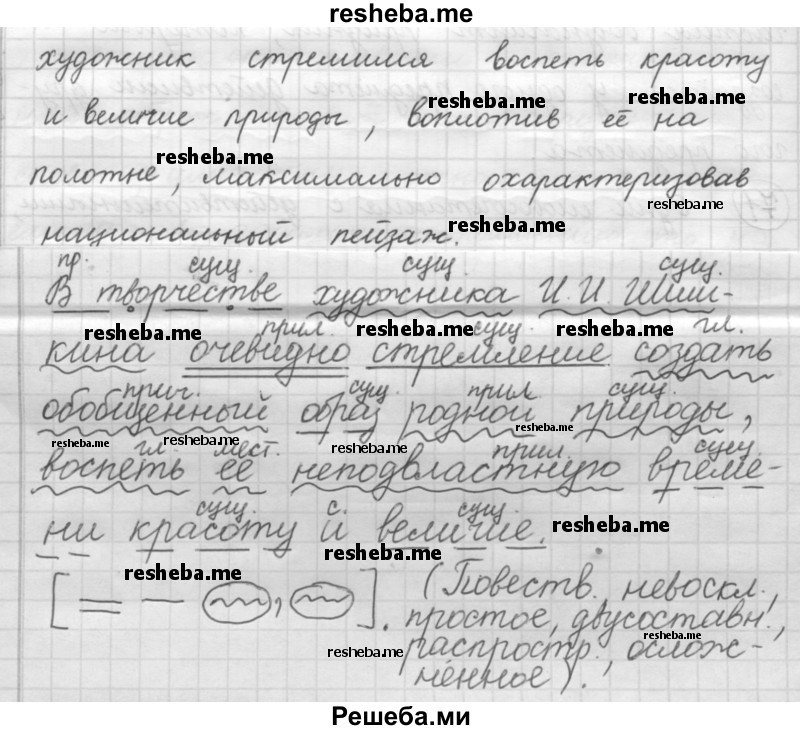 resheba.me
художник стремился воспеть красоту
resheba.me resheba.me
и величие природы, воплотив её на
resheba.me
полотне, максимально охарактеризовав
resheba.me
национальный пейзаж.
resheba.me
пр. сущ. сущ. сущ.
В творчестве художника И.И. Шиш-
resheba.me прил. resheba.me сущ. resheba.me гл.
кина очевидно стремление создать
прич. сущ. прил. сущ.
обобщенный образ родной природы,
resheba.me resheba.me resheba.me resheba.me
гл. мест. прил. сущ.
воспеть её неподвластную време-
сущ. с. сущ.
ни красоту и величие.
resheba.me
resheba.me
[ ═ — , ]. (Повеств., невоскл.,
простое, двусоставн.,
resheba.me
resheba.me
распростр., ослож-
нённое).
Решеба.ми